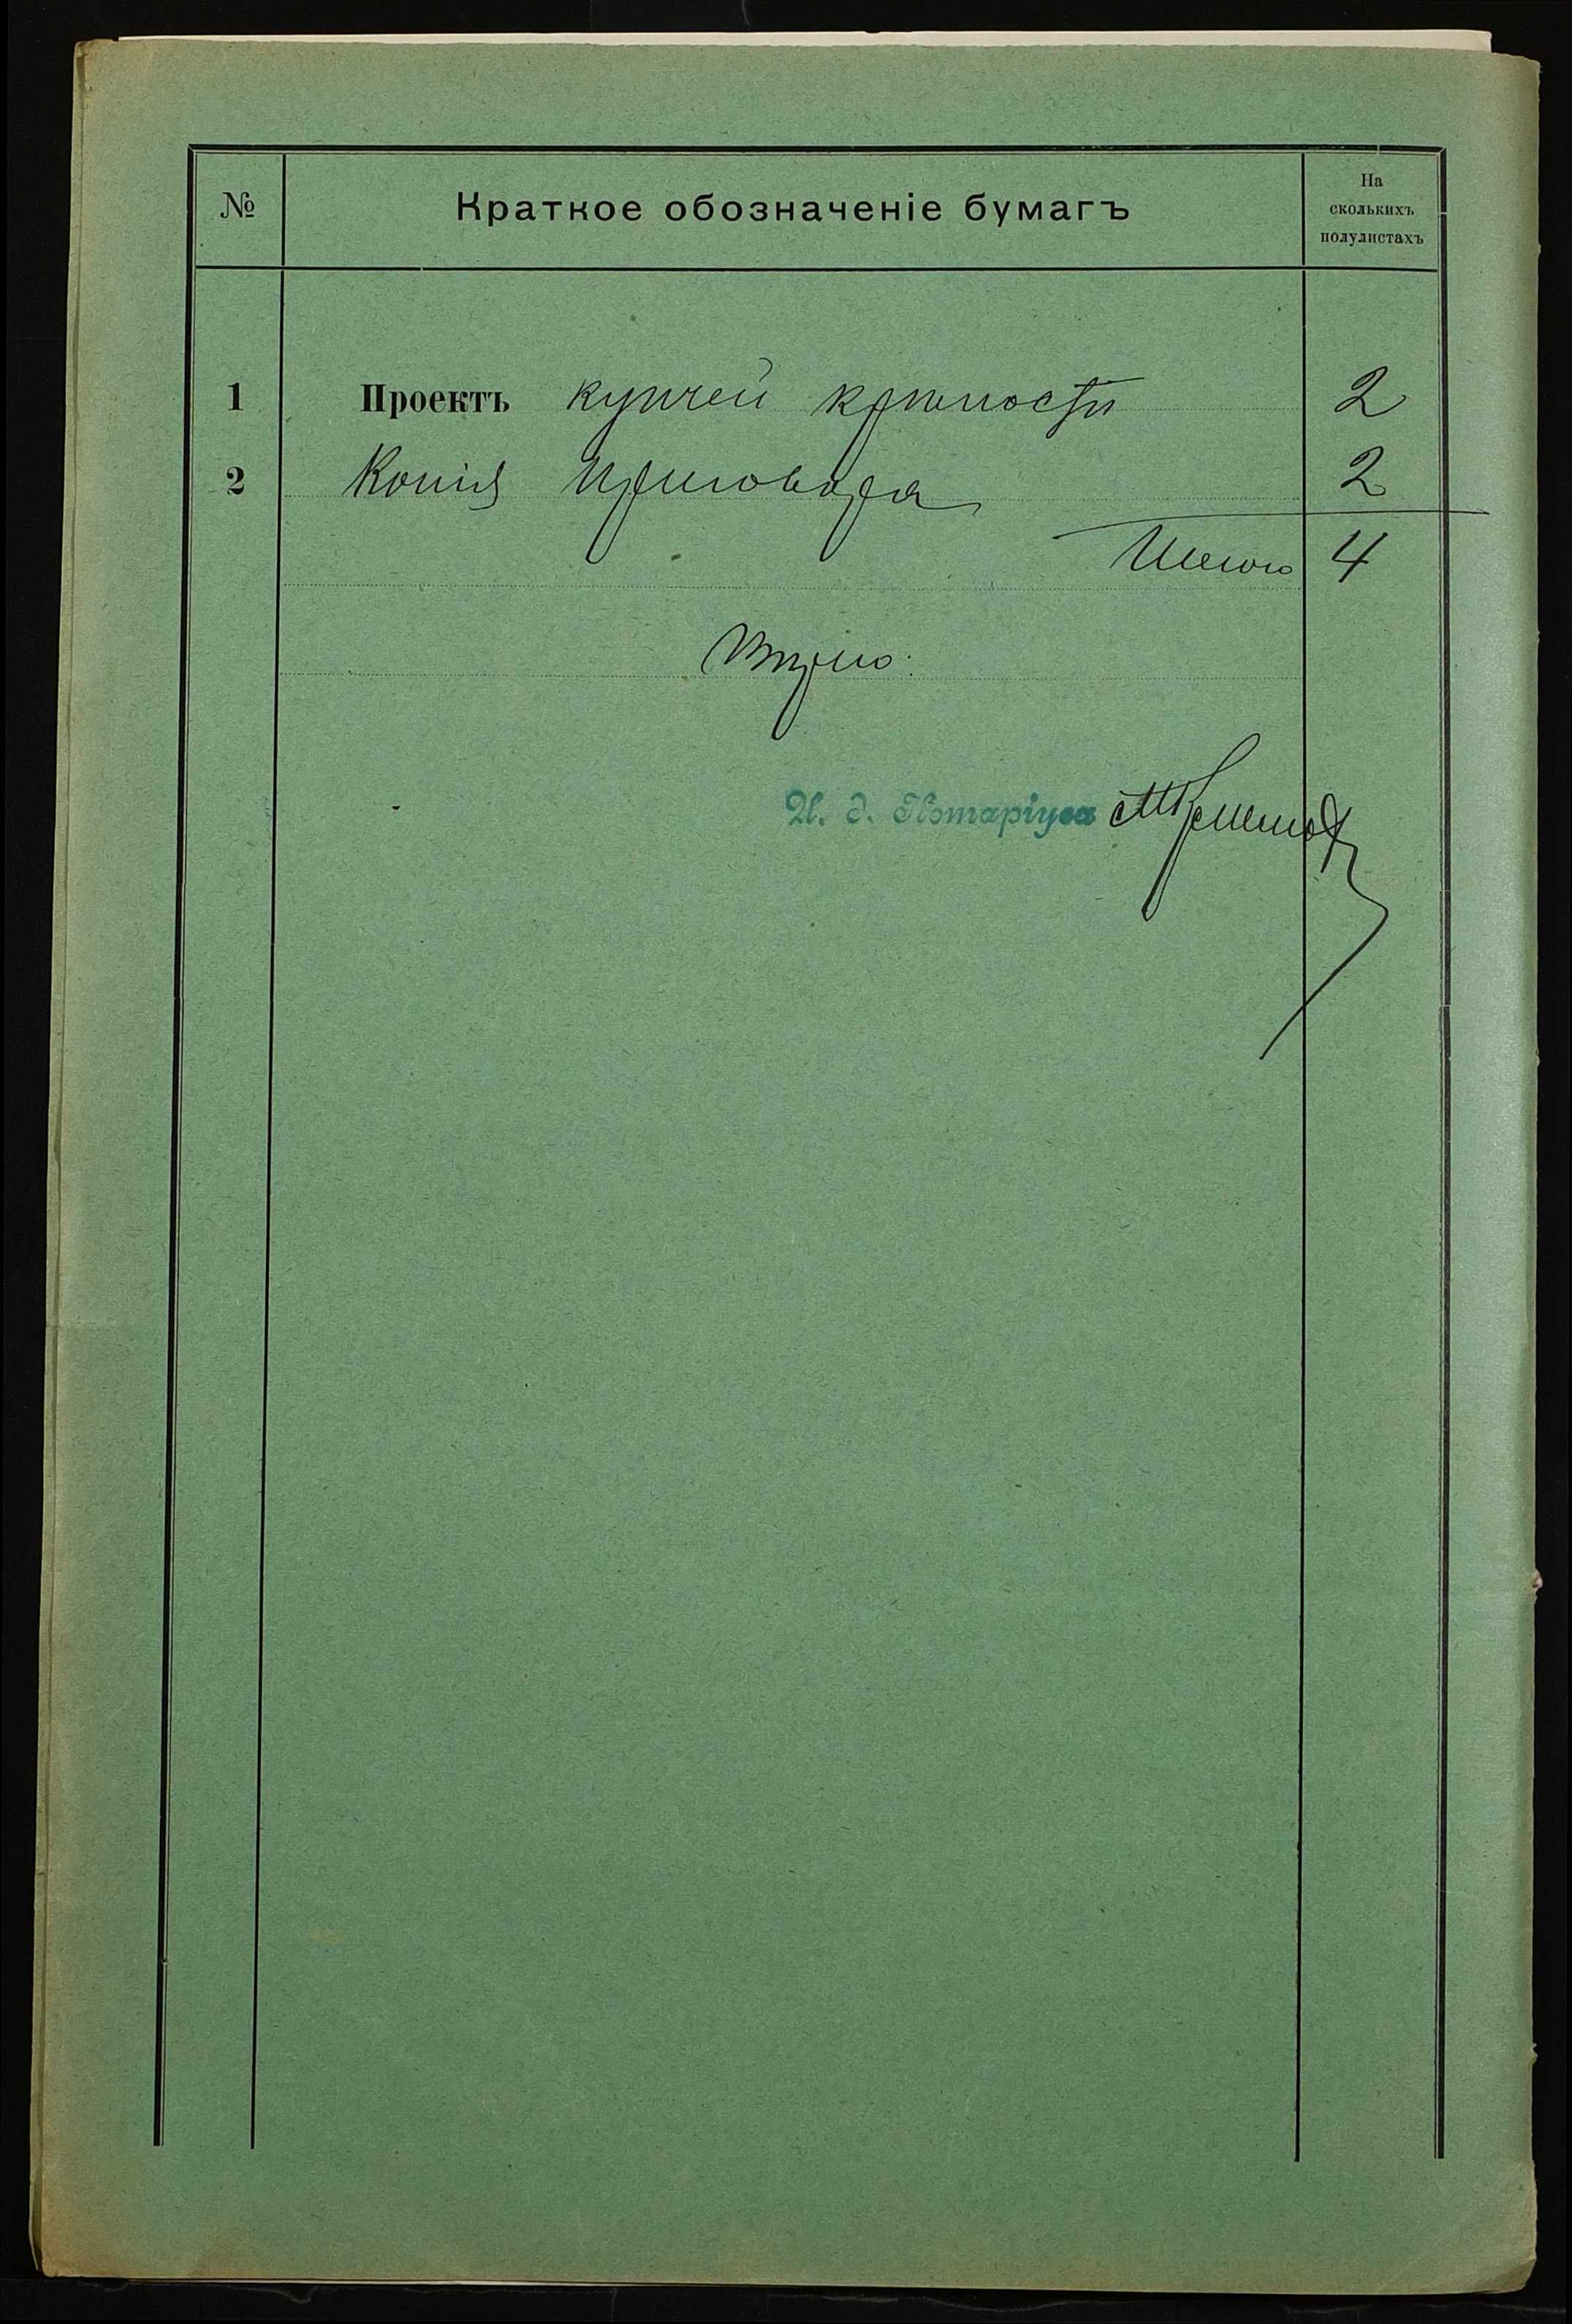 № Краткое обозначеніе бумагъ На
сколькихъ
полулистахъ
1 Проектъ купчей крѣпости 2
2 Копія приговора 2
Итого 4
Вѣрно:
И. д. Нотаріуса